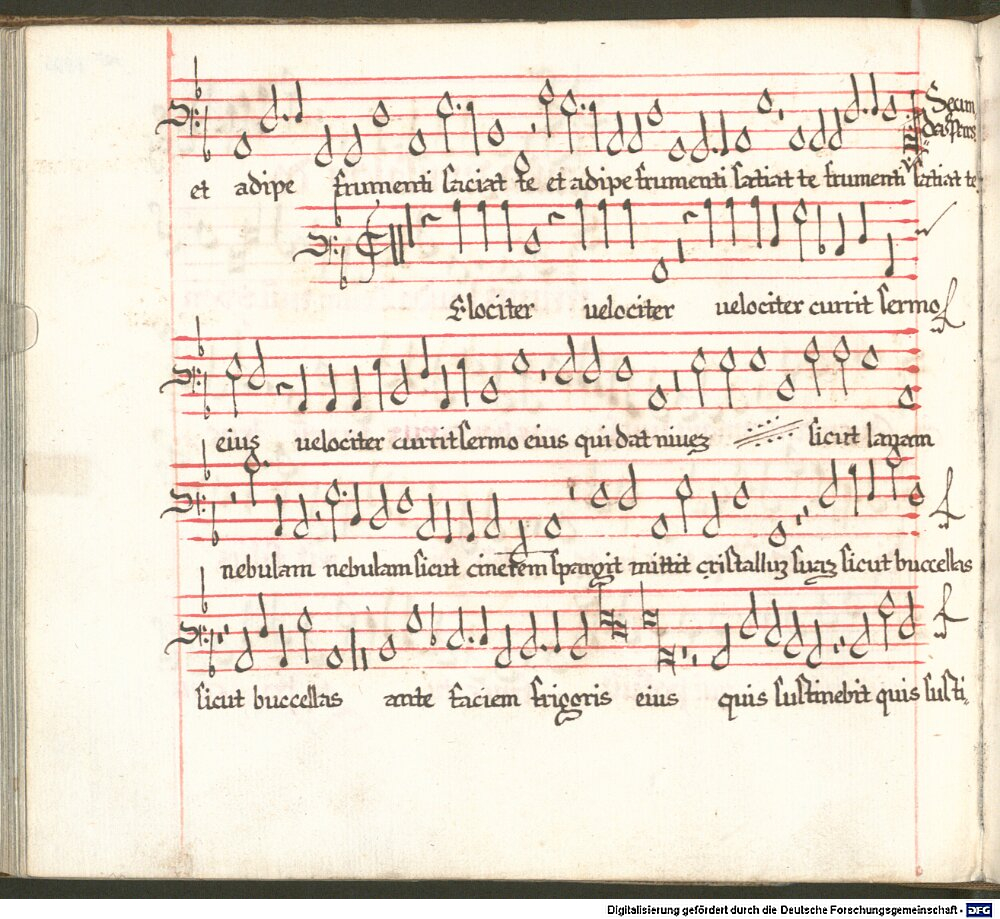 Secun
da pars
et adipe frumenti saciat te et adipe frumenti satiat te frumenti satiat te
Elociter uelociter uelociter currit sermo
eius uelociter currit sermo eius qui dat niuez sicut lanam
nebulam nebulam sicut cinerem spargit mittit cristalluz suaz sicut buccellas
sicut buccellas ante faciem frigoris eius quis sustinebit quis susti
Digitalisierung gefördert durch die Deutsche Forschungsgemeinschaft - DFG